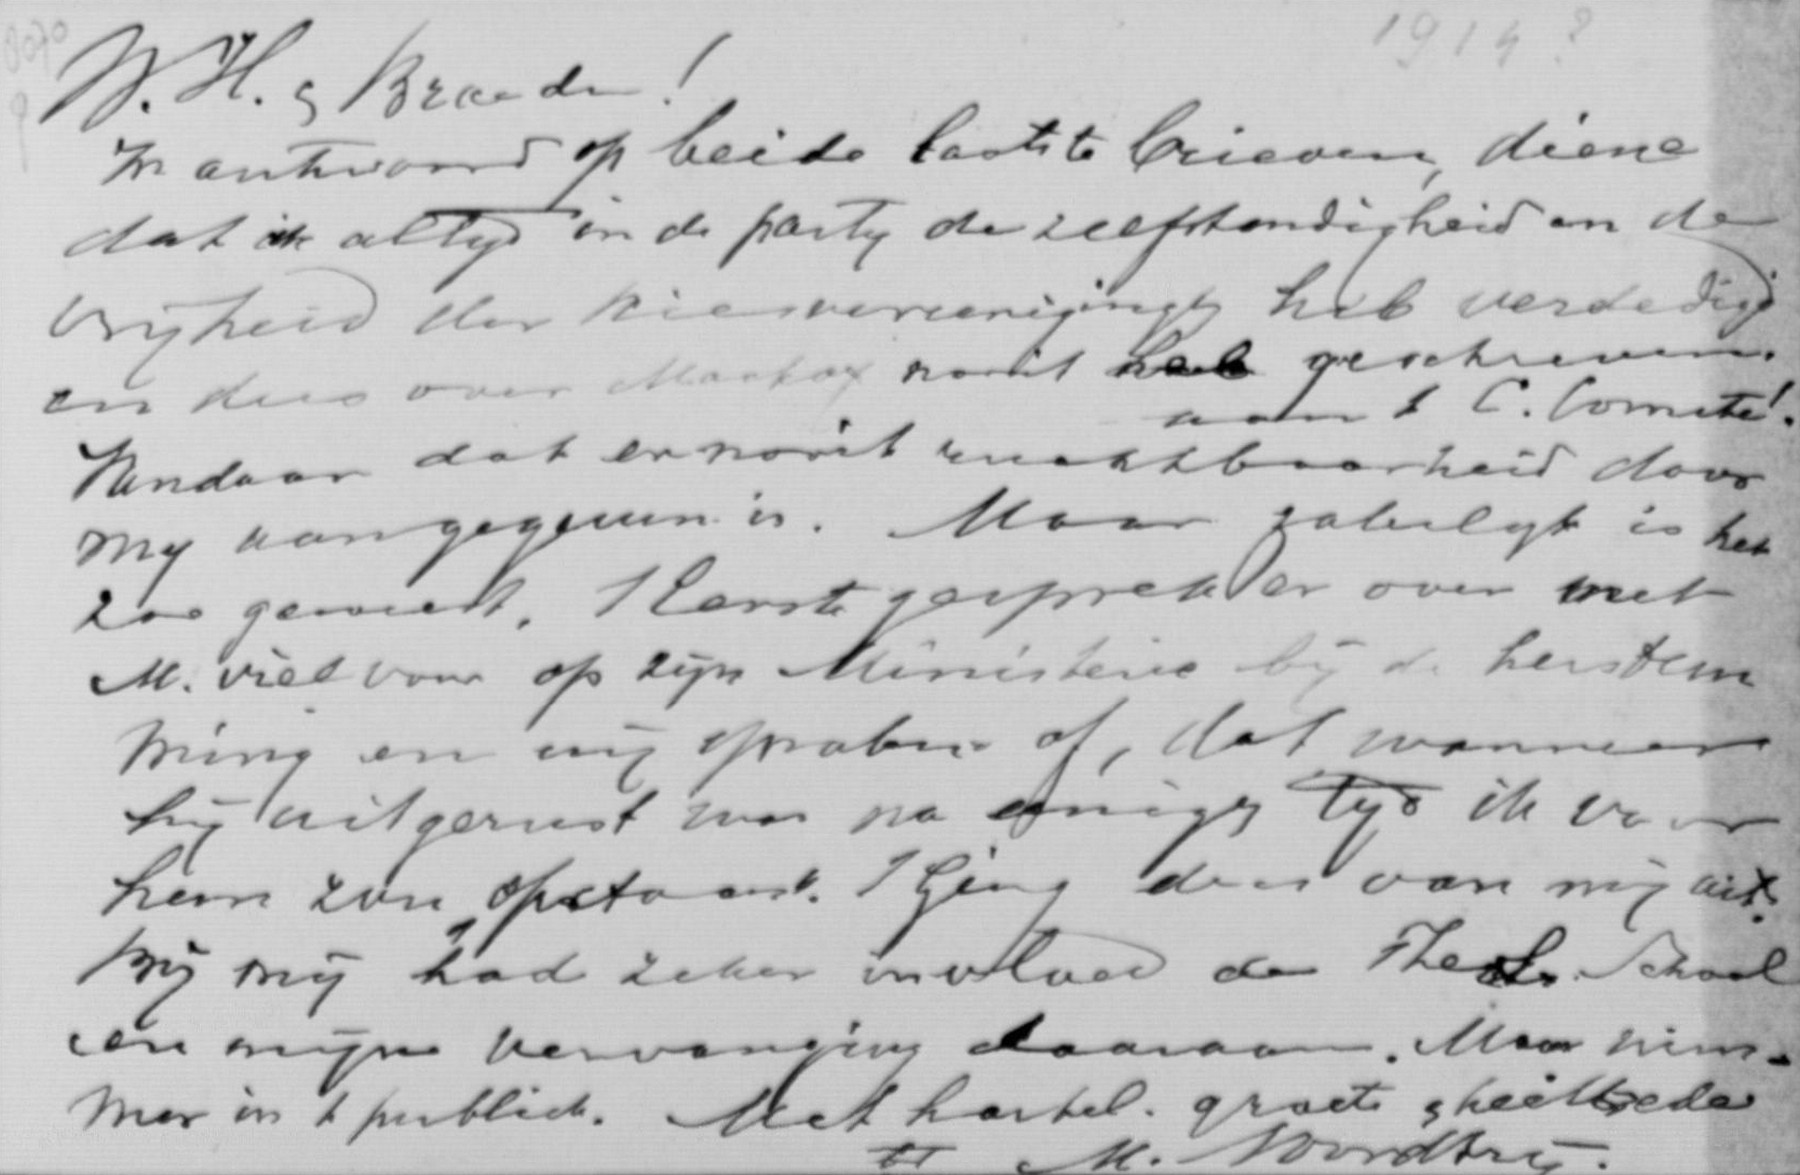 1914?
W. H. & Broeder!
In antwoord op beide laatste brieven, diene
dat ik altyd in de party de zelfstandigheid en de
vrijheid der kiesvereenigingen heb verdedigd
en dus over nooit heb geschreven
aan 't C. Comité!
Vandaar dat er nooit ruchtbaarheid door
my aan gegeven is. Maar zakelyk is het
zoo geweest. 't Eerste gesprek er over met
M. viel voor op zijn Ministerie bij de herstem
ming en wij spraken af, dat wanneer
hij uitgerust was na eenigen tyd ik voor
hem zou opstaan. 't Ging dus van mij uit.
Bij mij had zeker invloed de Theol. School
en mijne vervanging daaraan. Maar nim-
mer in 't publiek. Met hartel. groete & heilbede
tt M. Noordtzij.